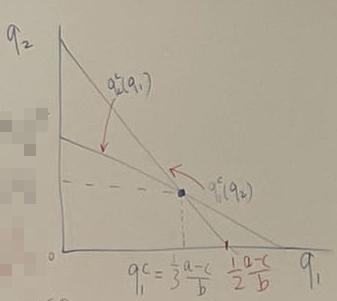 q₂
q₂ᶜ(q₁)
q₁ᶜ(q₂)
0
q₁ᶜ = 1/3 a-c/b
1/2 a-c/b
q₁